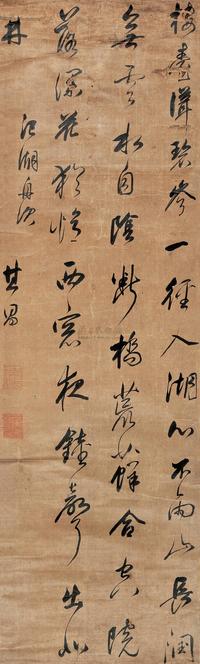 樓臺聳碧岑一徑入湖心不雨山長潤
無雲水自陰斷橋荒蘚合空院
落深花猶憶西窗夜鐘聲出北
林
江湖舟次
其昌